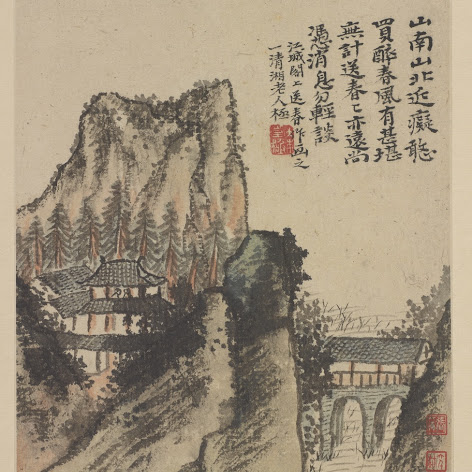 山南山北近癡憨
買醉春風有甚堪
無計送春〻亦遠尚
憑消息勿輕談
江城閣上送春作画之
一清湘老人極